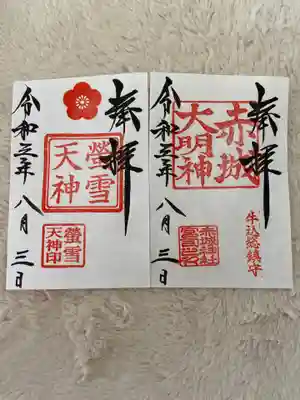 奉拝
赤城
大明神
牛込総鎮守
令和三年八月三日
奉拝
螢雪
天神
螢雪
天神印
令和三年八月三日